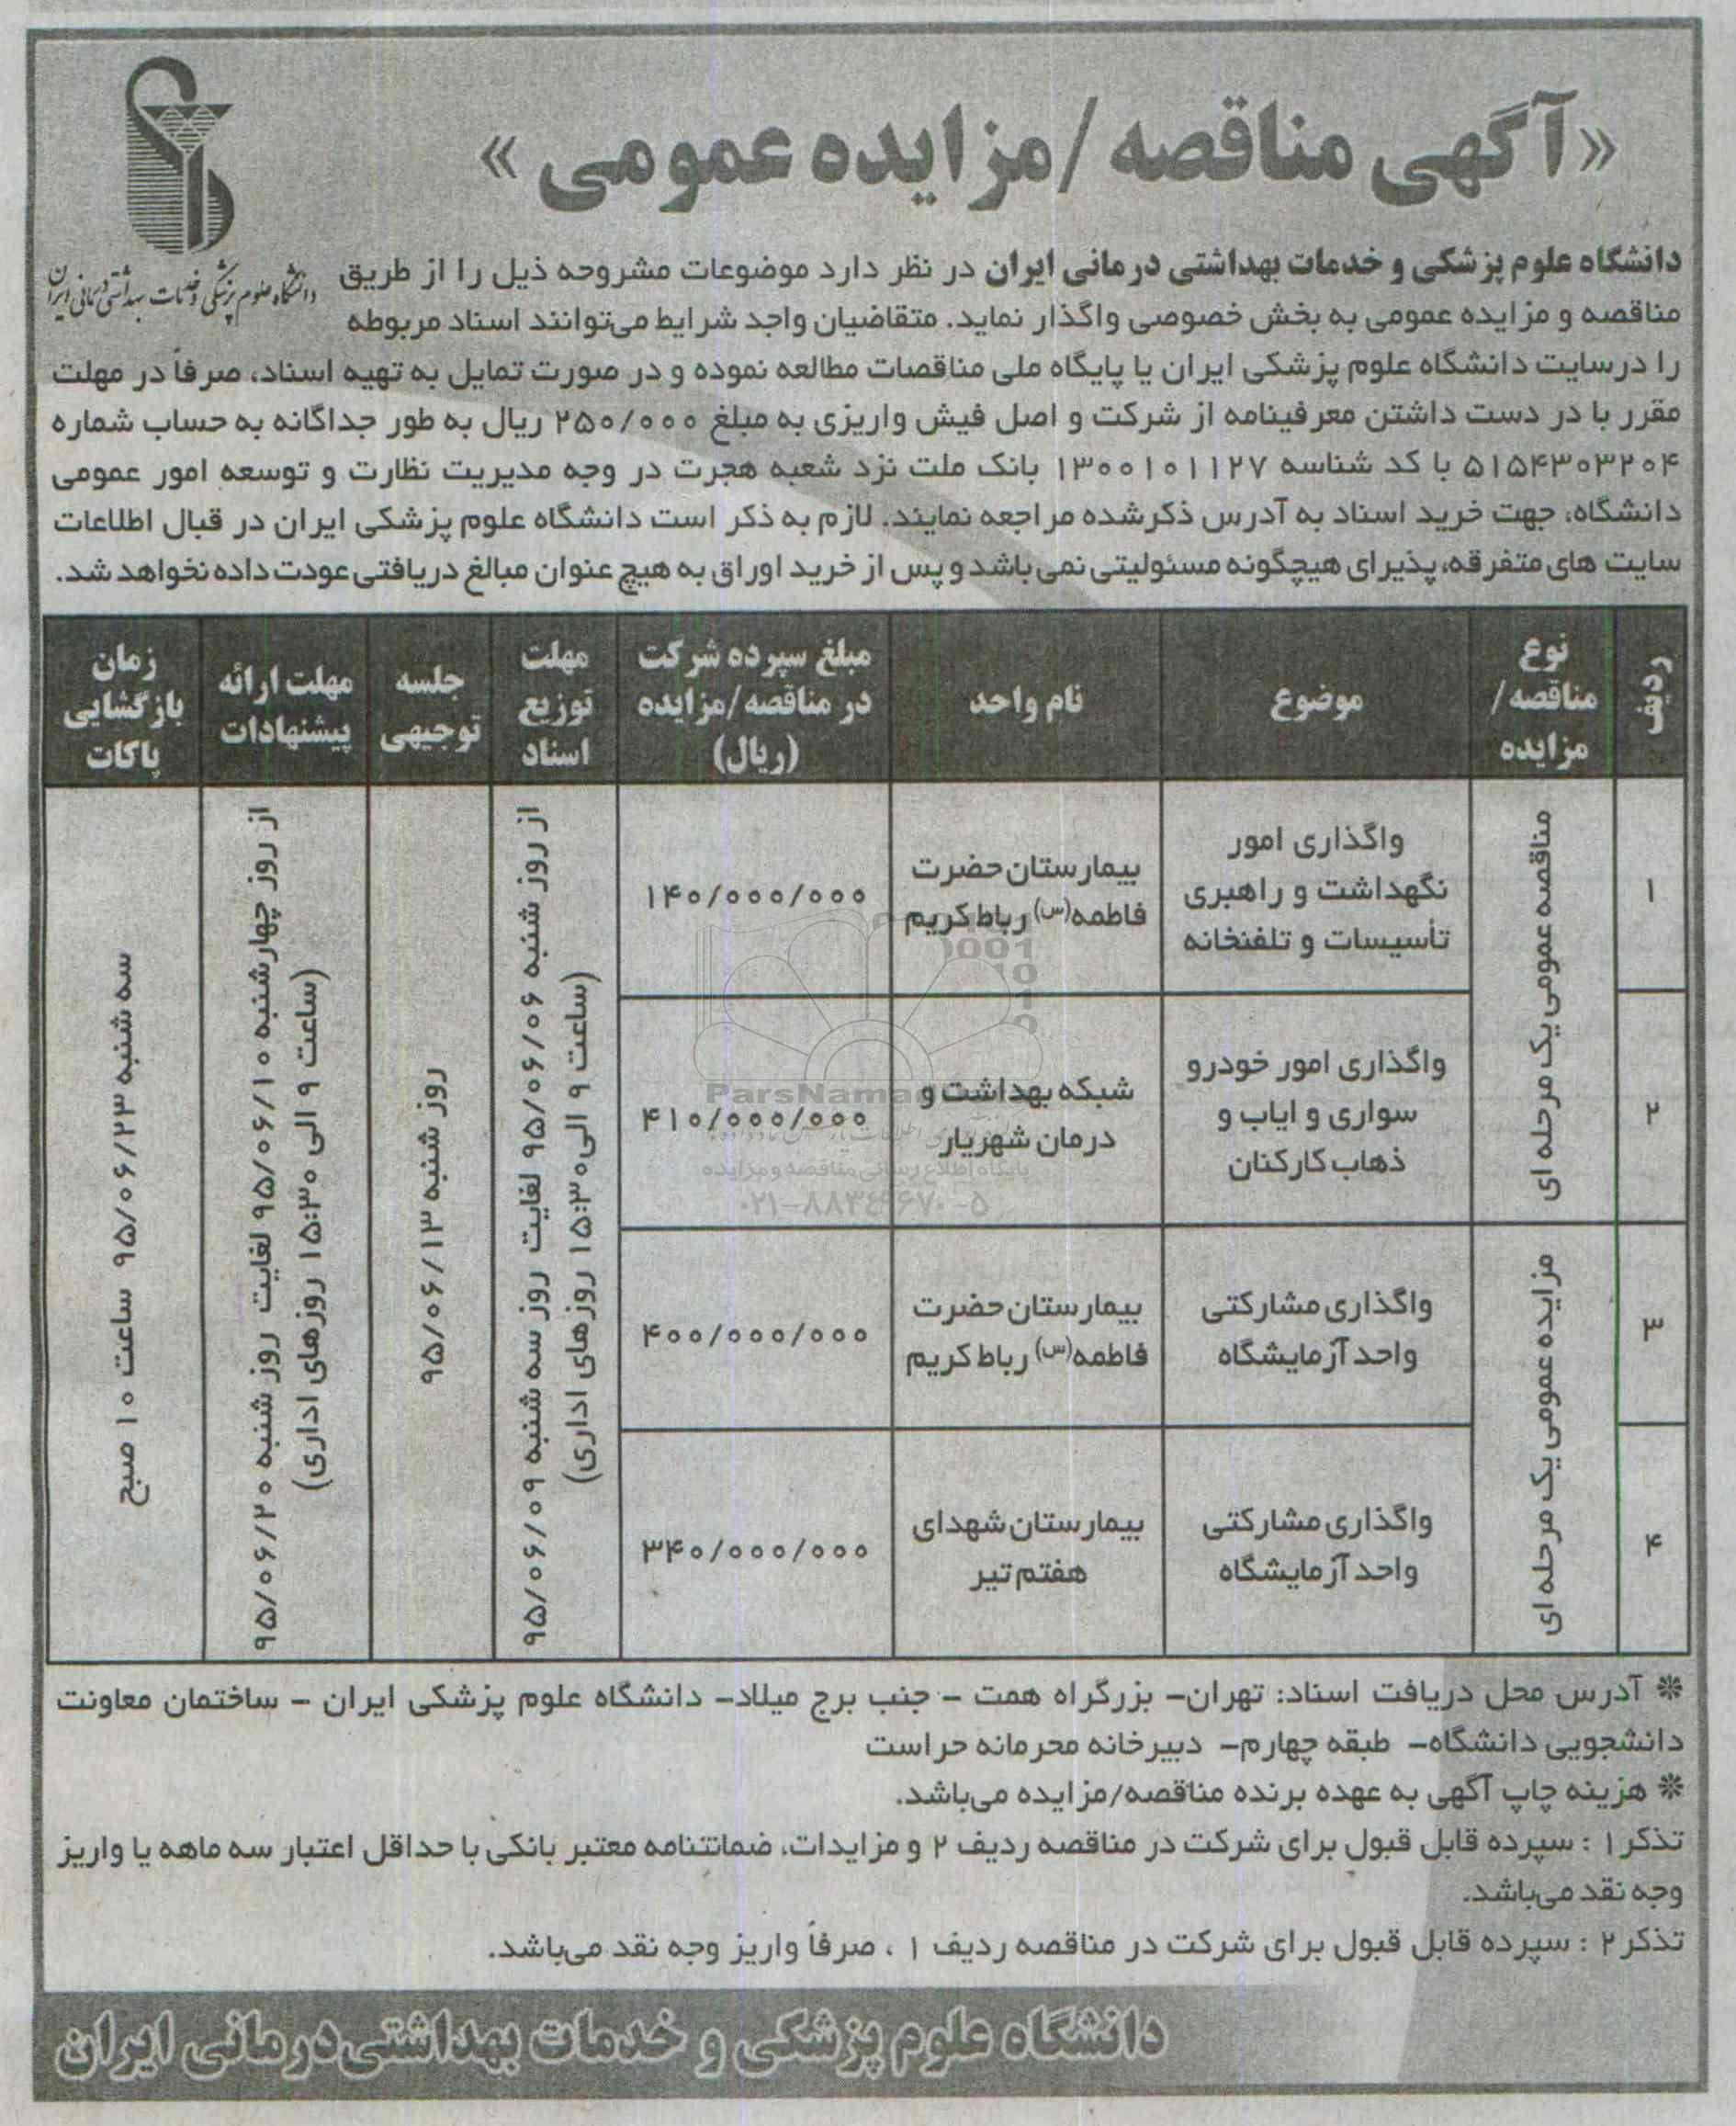 «آگهی مناقصه/مزایده عمومی»
دانشگاه علوم پزشکی و خدمات بهداشتی درمانی ایران
دانشگاه علوم پزشکی و خدمات بهداشتی درمانی ایران در نظر دارد موضوعات مشروحه ذیل را از طریق
مناقصه و مزایده عمومی به بخش خصوصی واگذار نماید. متقاضیان واجد شرایط می‌توانند اسناد مربوطه
را درسایت دانشگاه علوم پزشکی ایران یا پایگاه ملی مناقصات مطالعه نموده و در صورت تمایل به تهیه اسناد، صرفاً در مهلت
مقرر با در دست داشتن معرفینامه از شرکت و اصل فیش واریزی به مبلغ ۲۵۰/۰۰۰ ریال به طور جداگانه به حساب شماره
۵۱۵۴۳۰۳۲۰۴ با کد شناسه ۱۳۰۰۱۰۱۱۲۷ بانک ملت نزد شعبه هجرت در وجه مدیریت نظارت و توسعه امور عمومی
دانشگاه، جهت خرید اسناد به آدرس ذکرشده مراجعه نمایند. لازم به ذکر است دانشگاه علوم پزشکی ایران در قبال اطلاعات
سایت های متفرقه، پذیرای هیچگونه مسئولیتی نمی باشد و پس از خرید اوراق به هیچ عنوان مبالغ دریافتی عودت داده نخواهد شد.
ردیف
نوع
مناقصه/
مزایده
موضوع
نام واحد
مبلغ سپرده شرکت
در مناقصه/مزایده
(ریال)
مهلت
توزیع
اسناد
جلسه
توجیهی
مهلت ارائه
پیشنهادات
زمان
بازگشایی
پاکات
۱
مناقصه عمومی یک مرحله ای
واگذاری امور
نگهداشت و راهبری
تأسیسات و تلفنخانه
بیمارستان حضرت
فاطمه(س) رباط کریم
۱۴۰/۰۰۰/۰۰۰
از روز شنبه ۹۵/۰۶/۰۶ لغایت روز سه شنبه ۹۵/۰۶/۰۹
(ساعت ۹ الی ۱۵:۳۰ روزهای اداری)
روز شنبه ۹۵/۰۶/۱۳
از روز چهارشنبه ۹۵/۰۶/۱۰ لغایت روز شنبه ۹۵/۰۶/۲۰
(ساعت ۹ الی ۱۵:۳۰ روزهای اداری)
سه شنبه ۹۵/۰۶/۲۳ ساعت ۱۰ صبح
۲
واگذاری امور خودرو
سواری و ایاب و
ذهاب کارکنان
شبکه بهداشت و
درمان شهریار
۴۱۰/۰۰۰/۰۰۰
۳
مزایده عمومی یک مرحله ای
واگذاری مشارکتی
واحد آزمایشگاه
بیمارستان حضرت
فاطمه(س) رباط کریم
۴۰۰/۰۰۰/۰۰۰
۴
واگذاری مشارکتی
واحد آزمایشگاه
بیمارستان شهدای
هفتم تیر
۳۴۰/۰۰۰/۰۰۰
ParsNama
پایگاه اطلاع رسانی مناقصه و مزایده
۰۲۱-۸۸۳۴۹۶۷۰-۵
* آدرس محل دریافت اسناد: تهران- بزرگراه همت - جنب برج میلاد- دانشگاه علوم پزشکی ایران - ساختمان معاونت
دانشجویی دانشگاه- طبقه چهارم- دبیرخانه محرمانه حراست
* هزینه چاپ آگهی به عهده برنده مناقصه/مزایده می‌باشد.
تذکر۱ : سپرده قابل قبول برای شرکت در مناقصه ردیف ۲ و مزایدات، ضمانتنامه معتبر بانکی با حداقل اعتبار سه ماهه یا واریز
وجه نقد می‌باشد.
تذکر۲ : سپرده قابل قبول برای شرکت در مناقصه ردیف ۱ ، صرفاً واریز وجه نقد می‌باشد.
دانشگاه علوم پزشکی و خدمات بهداشتی درمانی ایران